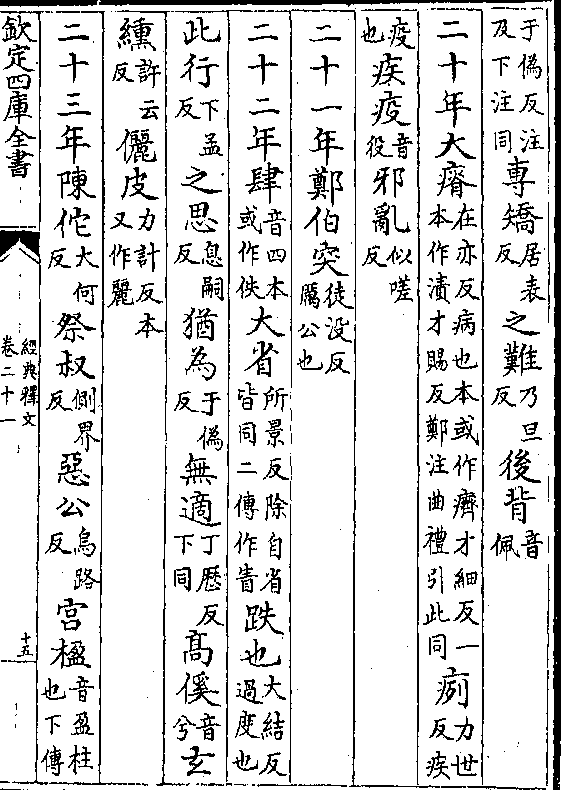 于偽反注及下注同專矯居表反之難乃旦反後背音佩
二十年大瘠在亦反病也本或作癠才細反一本作漬才賜反鄭注曲禮引此同㾐力世反疾
疫也疾疫音役邪亂似嗟反
二十一年鄭伯突徒没反厲公也
二十二年肆音四本或作佚大省所景反除自省皆同二傳作眚跌也大結反過度也
此行下孟反之思息嗣反猶為于偽反無適丁歷反下同高傒音兮玄
纁許云反儷皮力計反本又作麗
二十三年陳佗大何反祭叔側界反惡公烏路反宫楹音盈柱也下傳
欽定四庫全書
經典釋文
卷二十一
十五